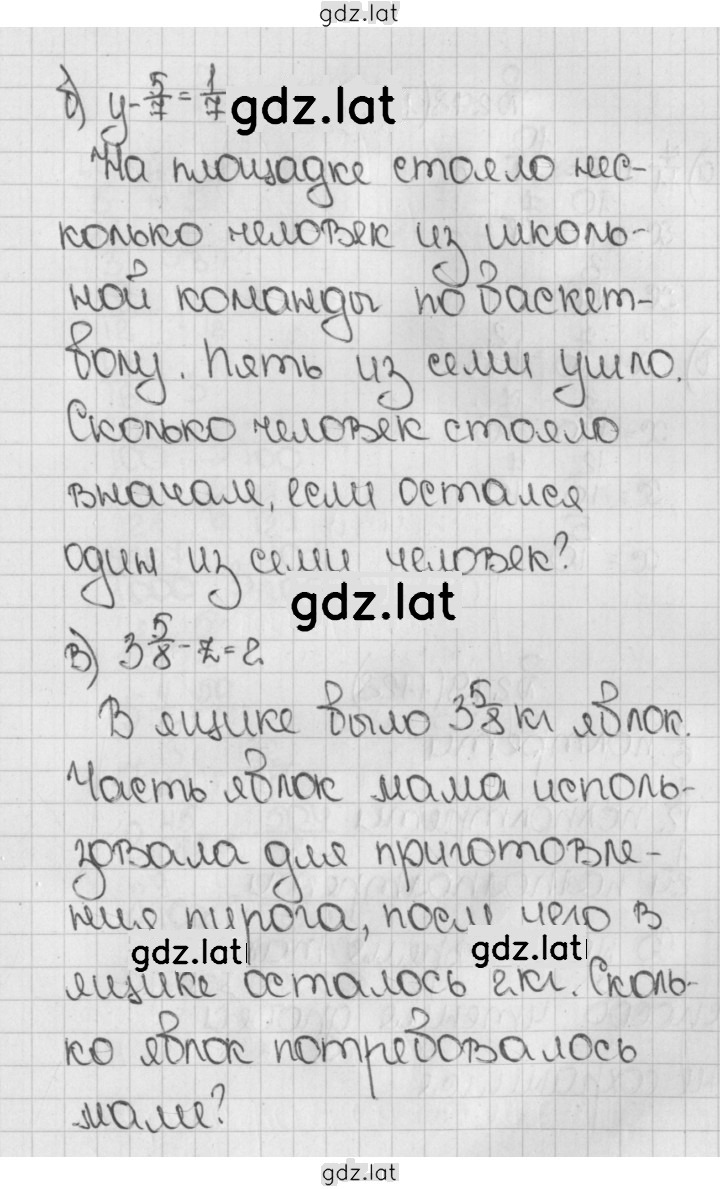 gdz.lat
б) y - 5/7 = 1/7 gdz.lat
На площадке стояло нес-
колько человек из школь-
ной команды по баскет-
болу. Пять из семи ушло.
Сколько человек стояло
вначале, если остался
один из семи человек?
gdz.lat
в) 3 5/8 - z = 2.
В ящике было 3 5/8 кг яблок.
Часть яблок мама исполь-
зовала для приготовле-
ния пирога, после чего в
gdz.lat gdz.lat
ящике осталось 2 кг. Сколь-
ко яблок потребовалось
маме?
gdz.lat